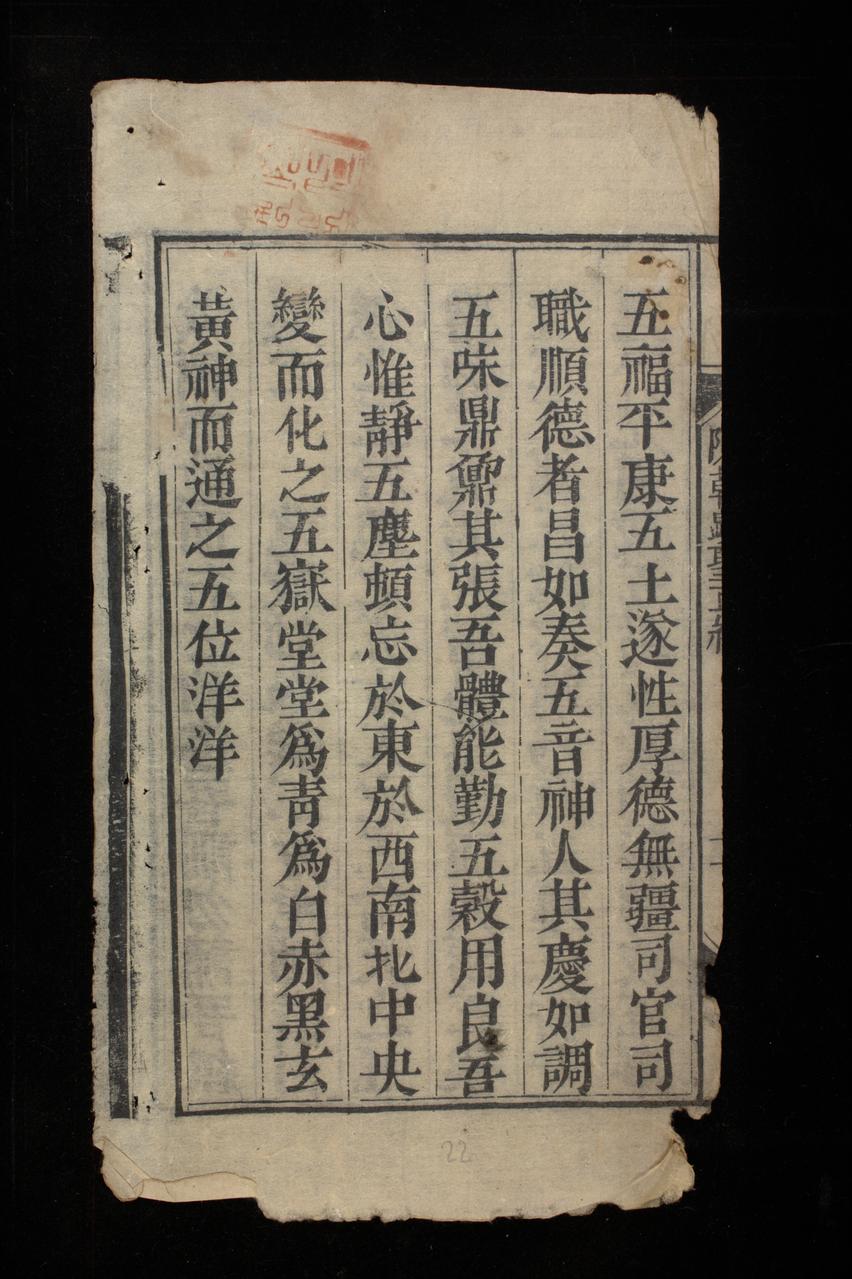 五福平康五土遂性厚德無疆司官司
職順德者昌如奏五音神人其慶如調
五味鼎鼐其張吾體能勤五穀用良吾
心惟靜五塵頓忘於東於西南北中央
變而化之五嶽堂堂爲靑爲白赤黑玄
黃神而通之五位洋洋
22